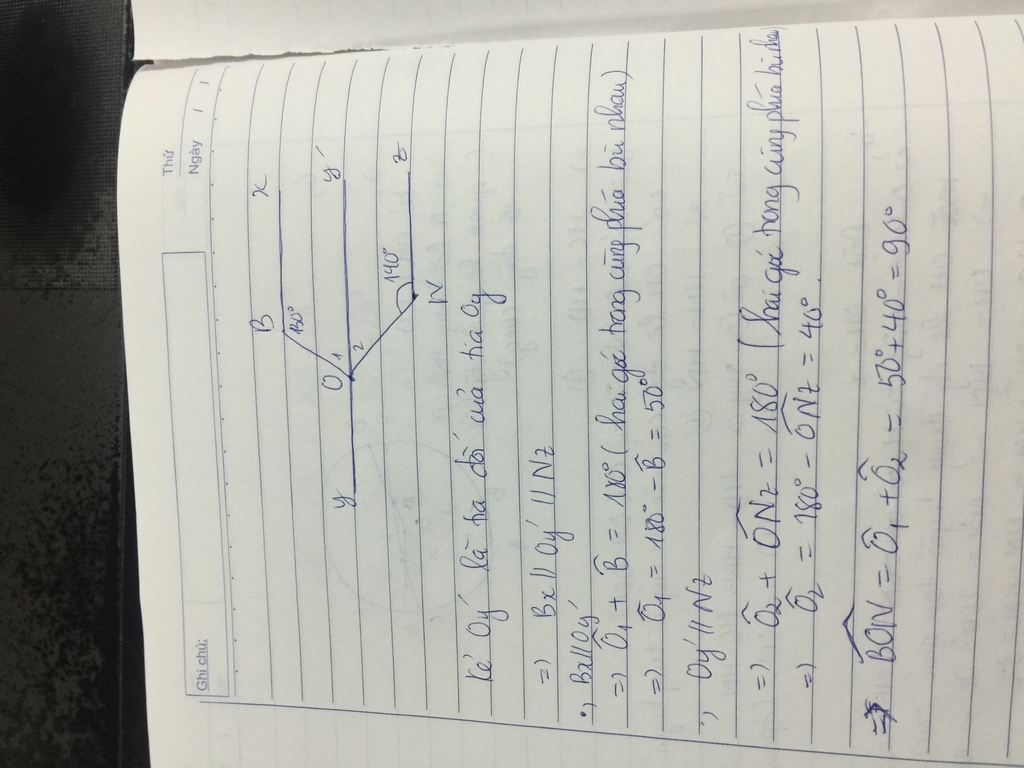 Thứ
Ghi chú:
Ngày / /
B x
130°
y O 1 y'
2
140° z
N
Kẻ Oy' là tia đối của tia Oy
=) Bx // Oy' // Nz
•, Bx // Oy'
=) Ô₁ + B̂ = 180° ( hai góc trong cùng phía bù nhau)
=) Ô₁ = 180° - B̂ = 50°
•, Oy' // Nz
=) Ô₂ + ONz^ = 180° ( hai góc trong cùng phía bù nhau)
=) Ô₂ = 180° - ONz^ = 40°.
=> BON^ = Ô₁ + Ô₂ = 50° + 40° = 90°